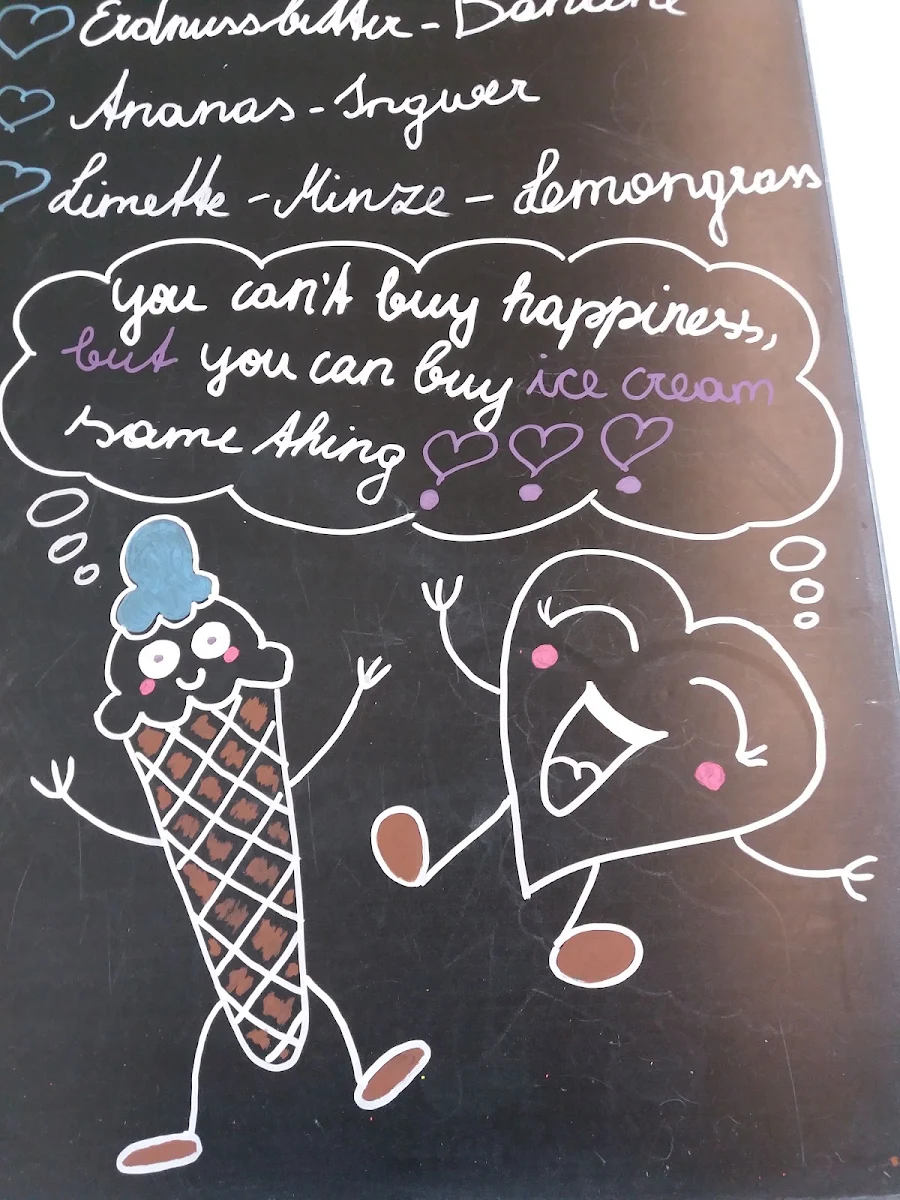 Erdnussbutter - Banane
Ananas - Ingwer
Limette - Minze - Lemongrass
you can't buy happiness,
but you can buy ice cream
same thing